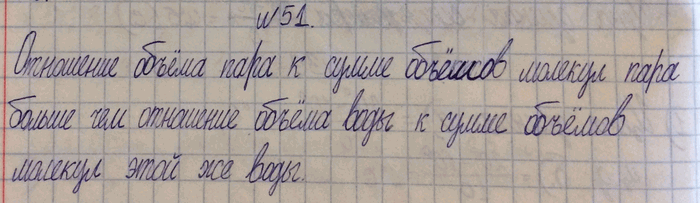 №51.
Отношение объёма пара к сумме объёмов молекул пара
больше чем отношение объёма воды к сумме объёмов
молекул этой же воды.